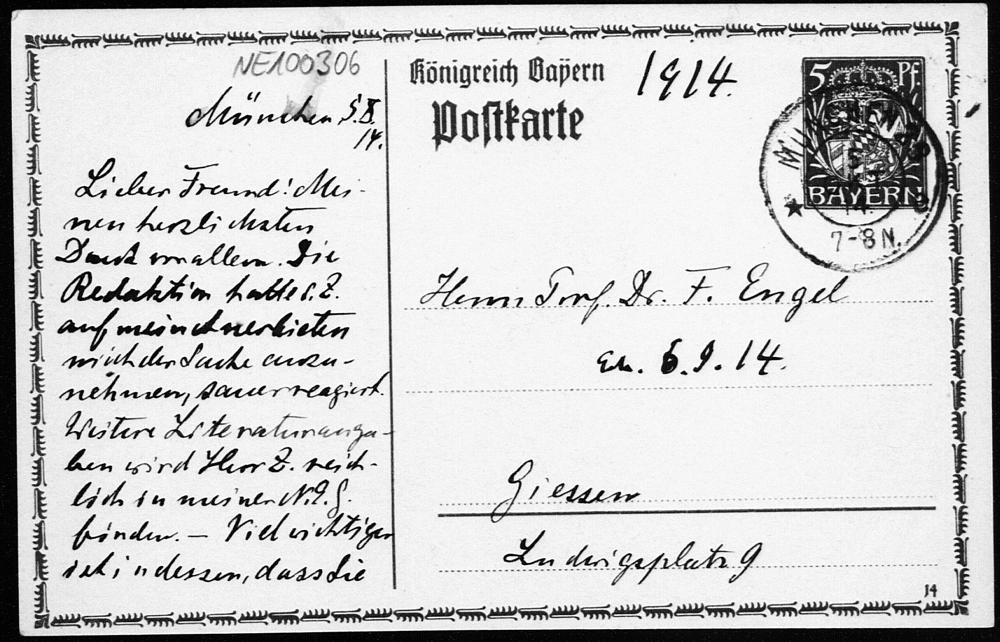 NE100306
München, 5.X.
14.
Lieber Freund! Mei-
nen herzlichsten
Dank vor allem. Die
Redaktion hatte s. Z.
auf mein Anerbieten
mich der Sache anzu-
nehmen, sauer reagiert.
Weitere Literaturanga-
ben wird Herr Z. reich-
lich in meiner N.I.G.
finden. — Viel wichtiger
ist indessen, dass die
Königreich Bayern
1914.
Postkarte
5 Pf
BAYERN
MÜNCHEN
5
14.
7-8 N.
Herrn Prof. Dr. F. Engel
6.9.14.
Giessen
Ludwigsplatz 9
14